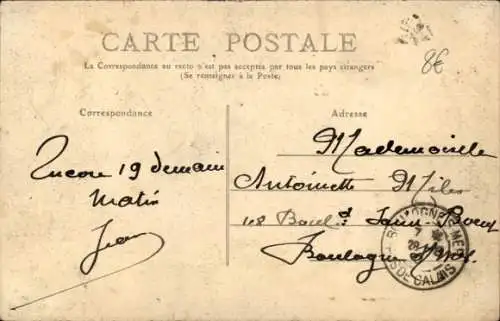 CARTE POSTALE
La Correspondance au recto n'est pas acceptée par tous les pays étrangers
(Se renseigner à la Poste)
8€
Correspondance
Adresse
Encore 19 demain
matin
Jean
Mademoiselle
Antoinette
Boul.d
Boulogne s/Mer
BOULOGNE-S-MER
PAS DE CALAIS